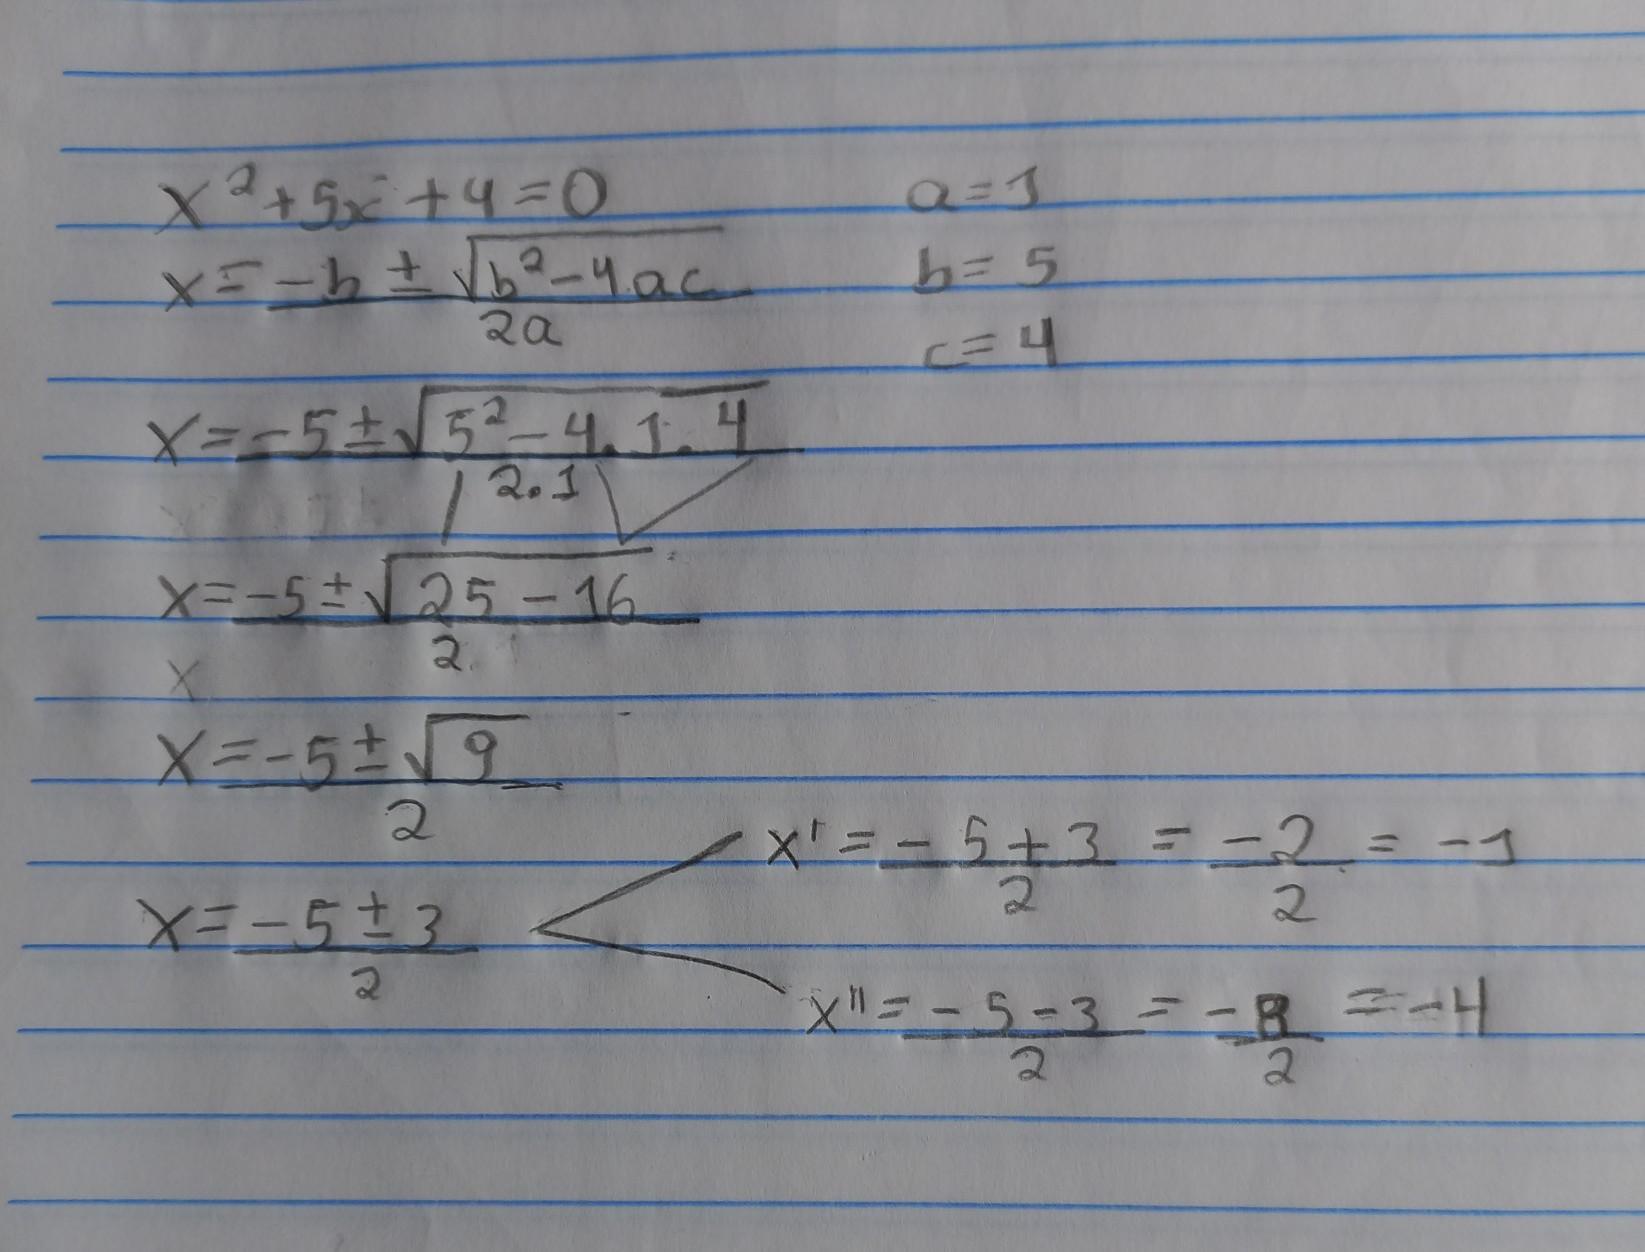 x² + 5x + 4 = 0
a = 1
x = (-b ± √(b² - 4.ac)) / 2a
b = 5
c = 4
x = (-5 ± √(5² - 4.1.4)) / 2.1
x = (-5 ± √(25 - 16)) / 2
x
x = (-5 ± √9) / 2
x' = (-5 + 3) / 2 = -2 / 2 = -1
x = (-5 ± 3) / 2
x'' = (-5 - 3) / 2 = -8 / 2 = -4